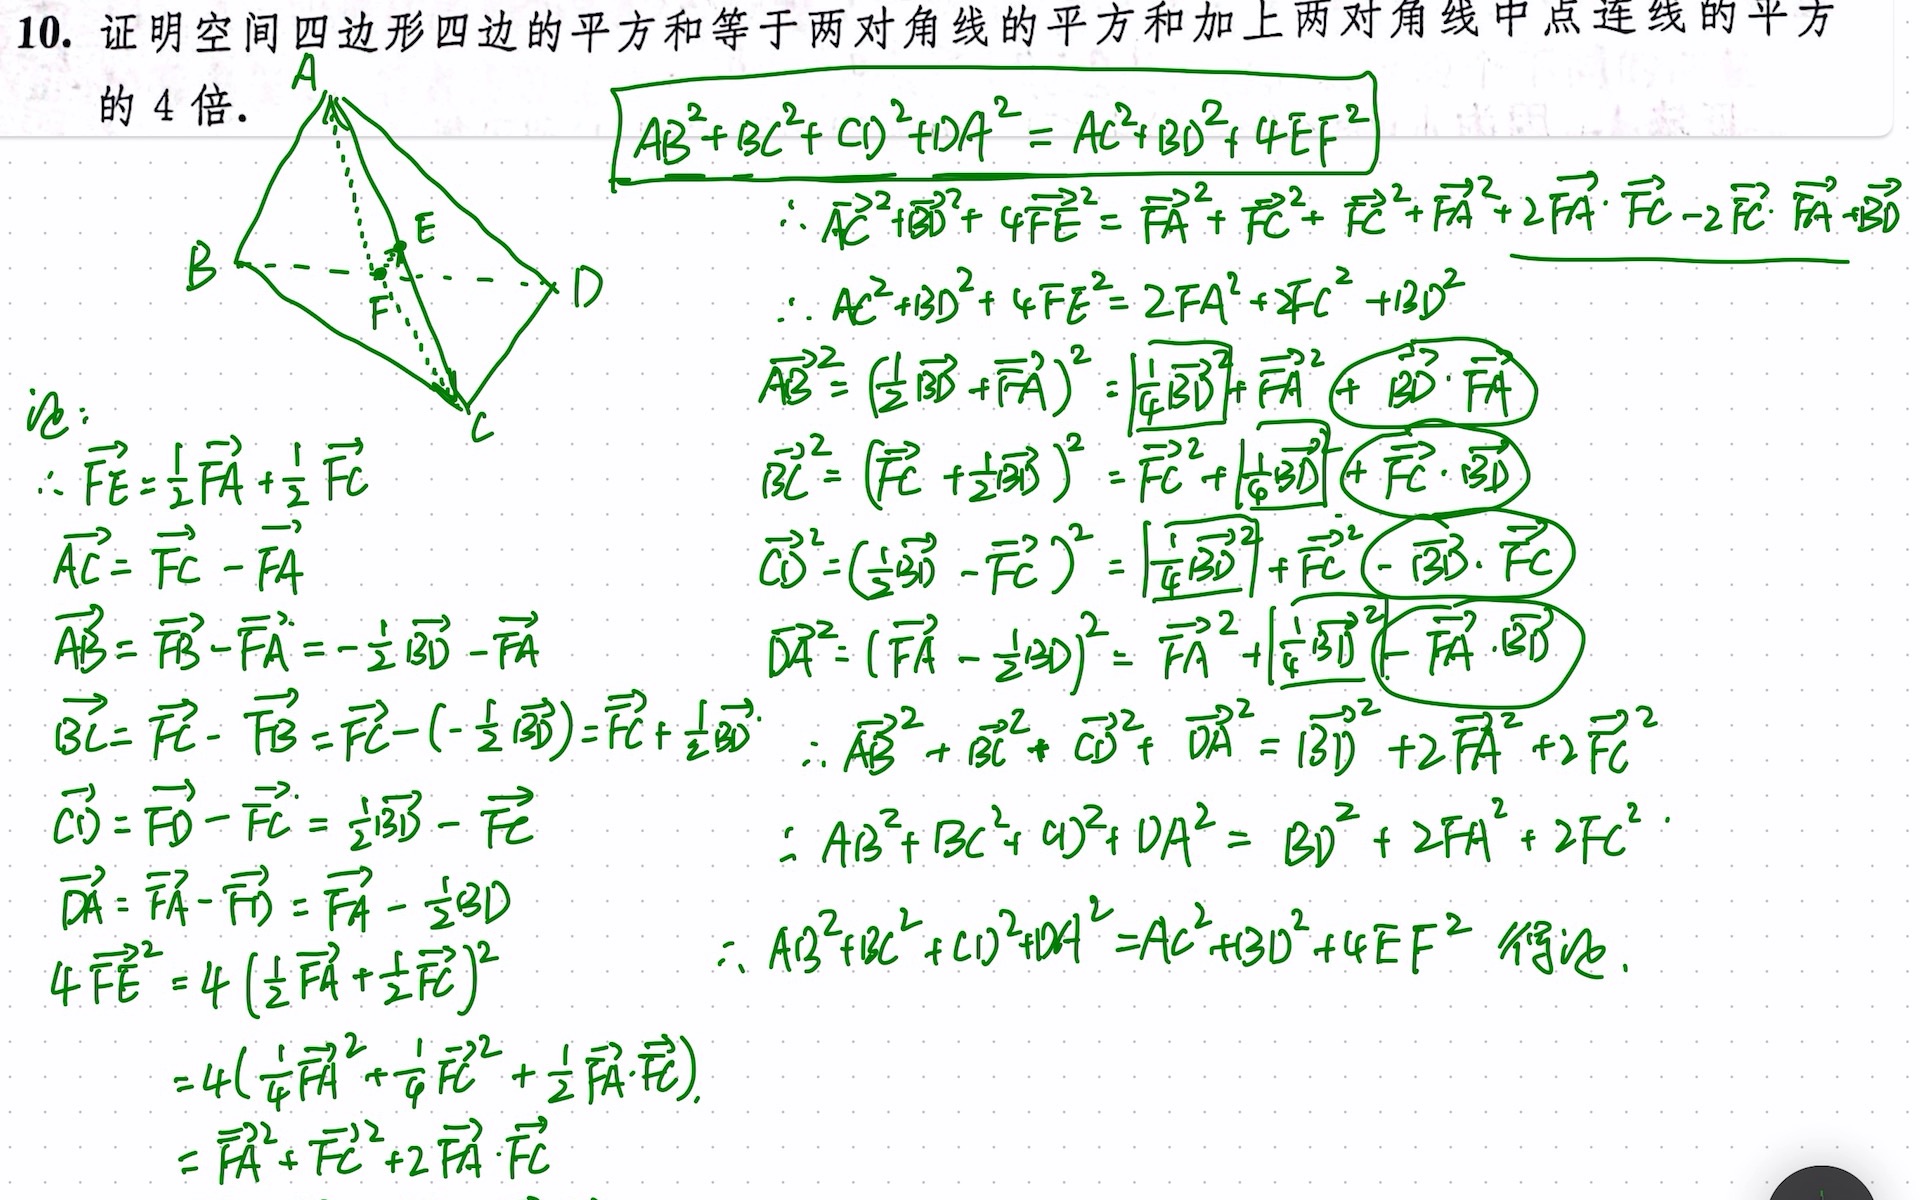 10. 证明空间四边形四边的平方和等于两对角线的平方和加上两对角线中点连线的平方
的 4 倍.
A
B
E
F
D
C
AB²+BC²+CD²+DA² = AC²+BD²+4EF²
证:
∴ FE⃗ = ½FA⃗ + ½FC⃗
AC⃗ = FC⃗ - FA⃗
AB⃗ = FB⃗ - FA⃗ = -½BD⃗ - FA⃗
BC⃗ = FC⃗ - FB⃗ = FC⃗ - (-½BD⃗) = FC⃗ + ½BD⃗
CD⃗ = FD⃗ - FC⃗ = ½BD⃗ - FC⃗
DA⃗ = FA⃗ - FD⃗ = FA⃗ - ½BD
4FE⃗² = 4(½FA⃗ + ½FC⃗)²
= 4(¼FA⃗² + ¼FC⃗² + ½FA⃗·FC⃗).
= FA⃗² + FC⃗² + 2FA⃗·FC⃗
∴ AC⃗² + BD⃗² + 4FE⃗² = FA⃗² + FC⃗² + FC⃗² + FA⃗² + 2FA⃗·FC⃗ - 2FC⃗·FA⃗ + BD⃗
∴ AC² + BD² + 4FE² = 2FA² + 2FC² + BD²
AB⃗² = (½BD⃗ + FA⃗)² = ¼BD⃗² + FA⃗² + BD⃗·FA⃗
BC⃗² = (FC⃗ + ½BD⃗)² = FC⃗² + ¼BD⃗² + FC⃗·BD⃗
CD⃗² = (½BD⃗ - FC⃗)² = ¼BD⃗² + FC⃗² - BD⃗·FC⃗
DA⃗² = (FA⃗ - ½BD)² = FA⃗² + ¼BD⃗² - FA⃗·BD⃗
∴ AB⃗² + BC⃗² + CD⃗² + DA⃗² = BD⃗² + 2FA⃗² + 2FC⃗²
∴ AB² + BC² + CD² + DA² = BD² + 2FA² + 2FC².
∴ AB² + BC² + CD² + DA² = AC² + BD² + 4EF² 得证.